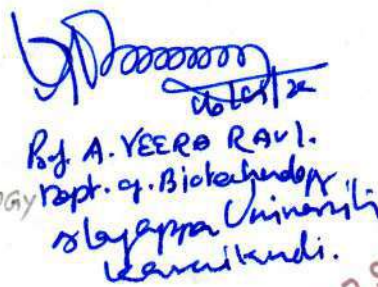 Prof. A. VEERA RAVI.
Dept. of. Biotechnology
Alagappa University
Karaikudi.
OGY